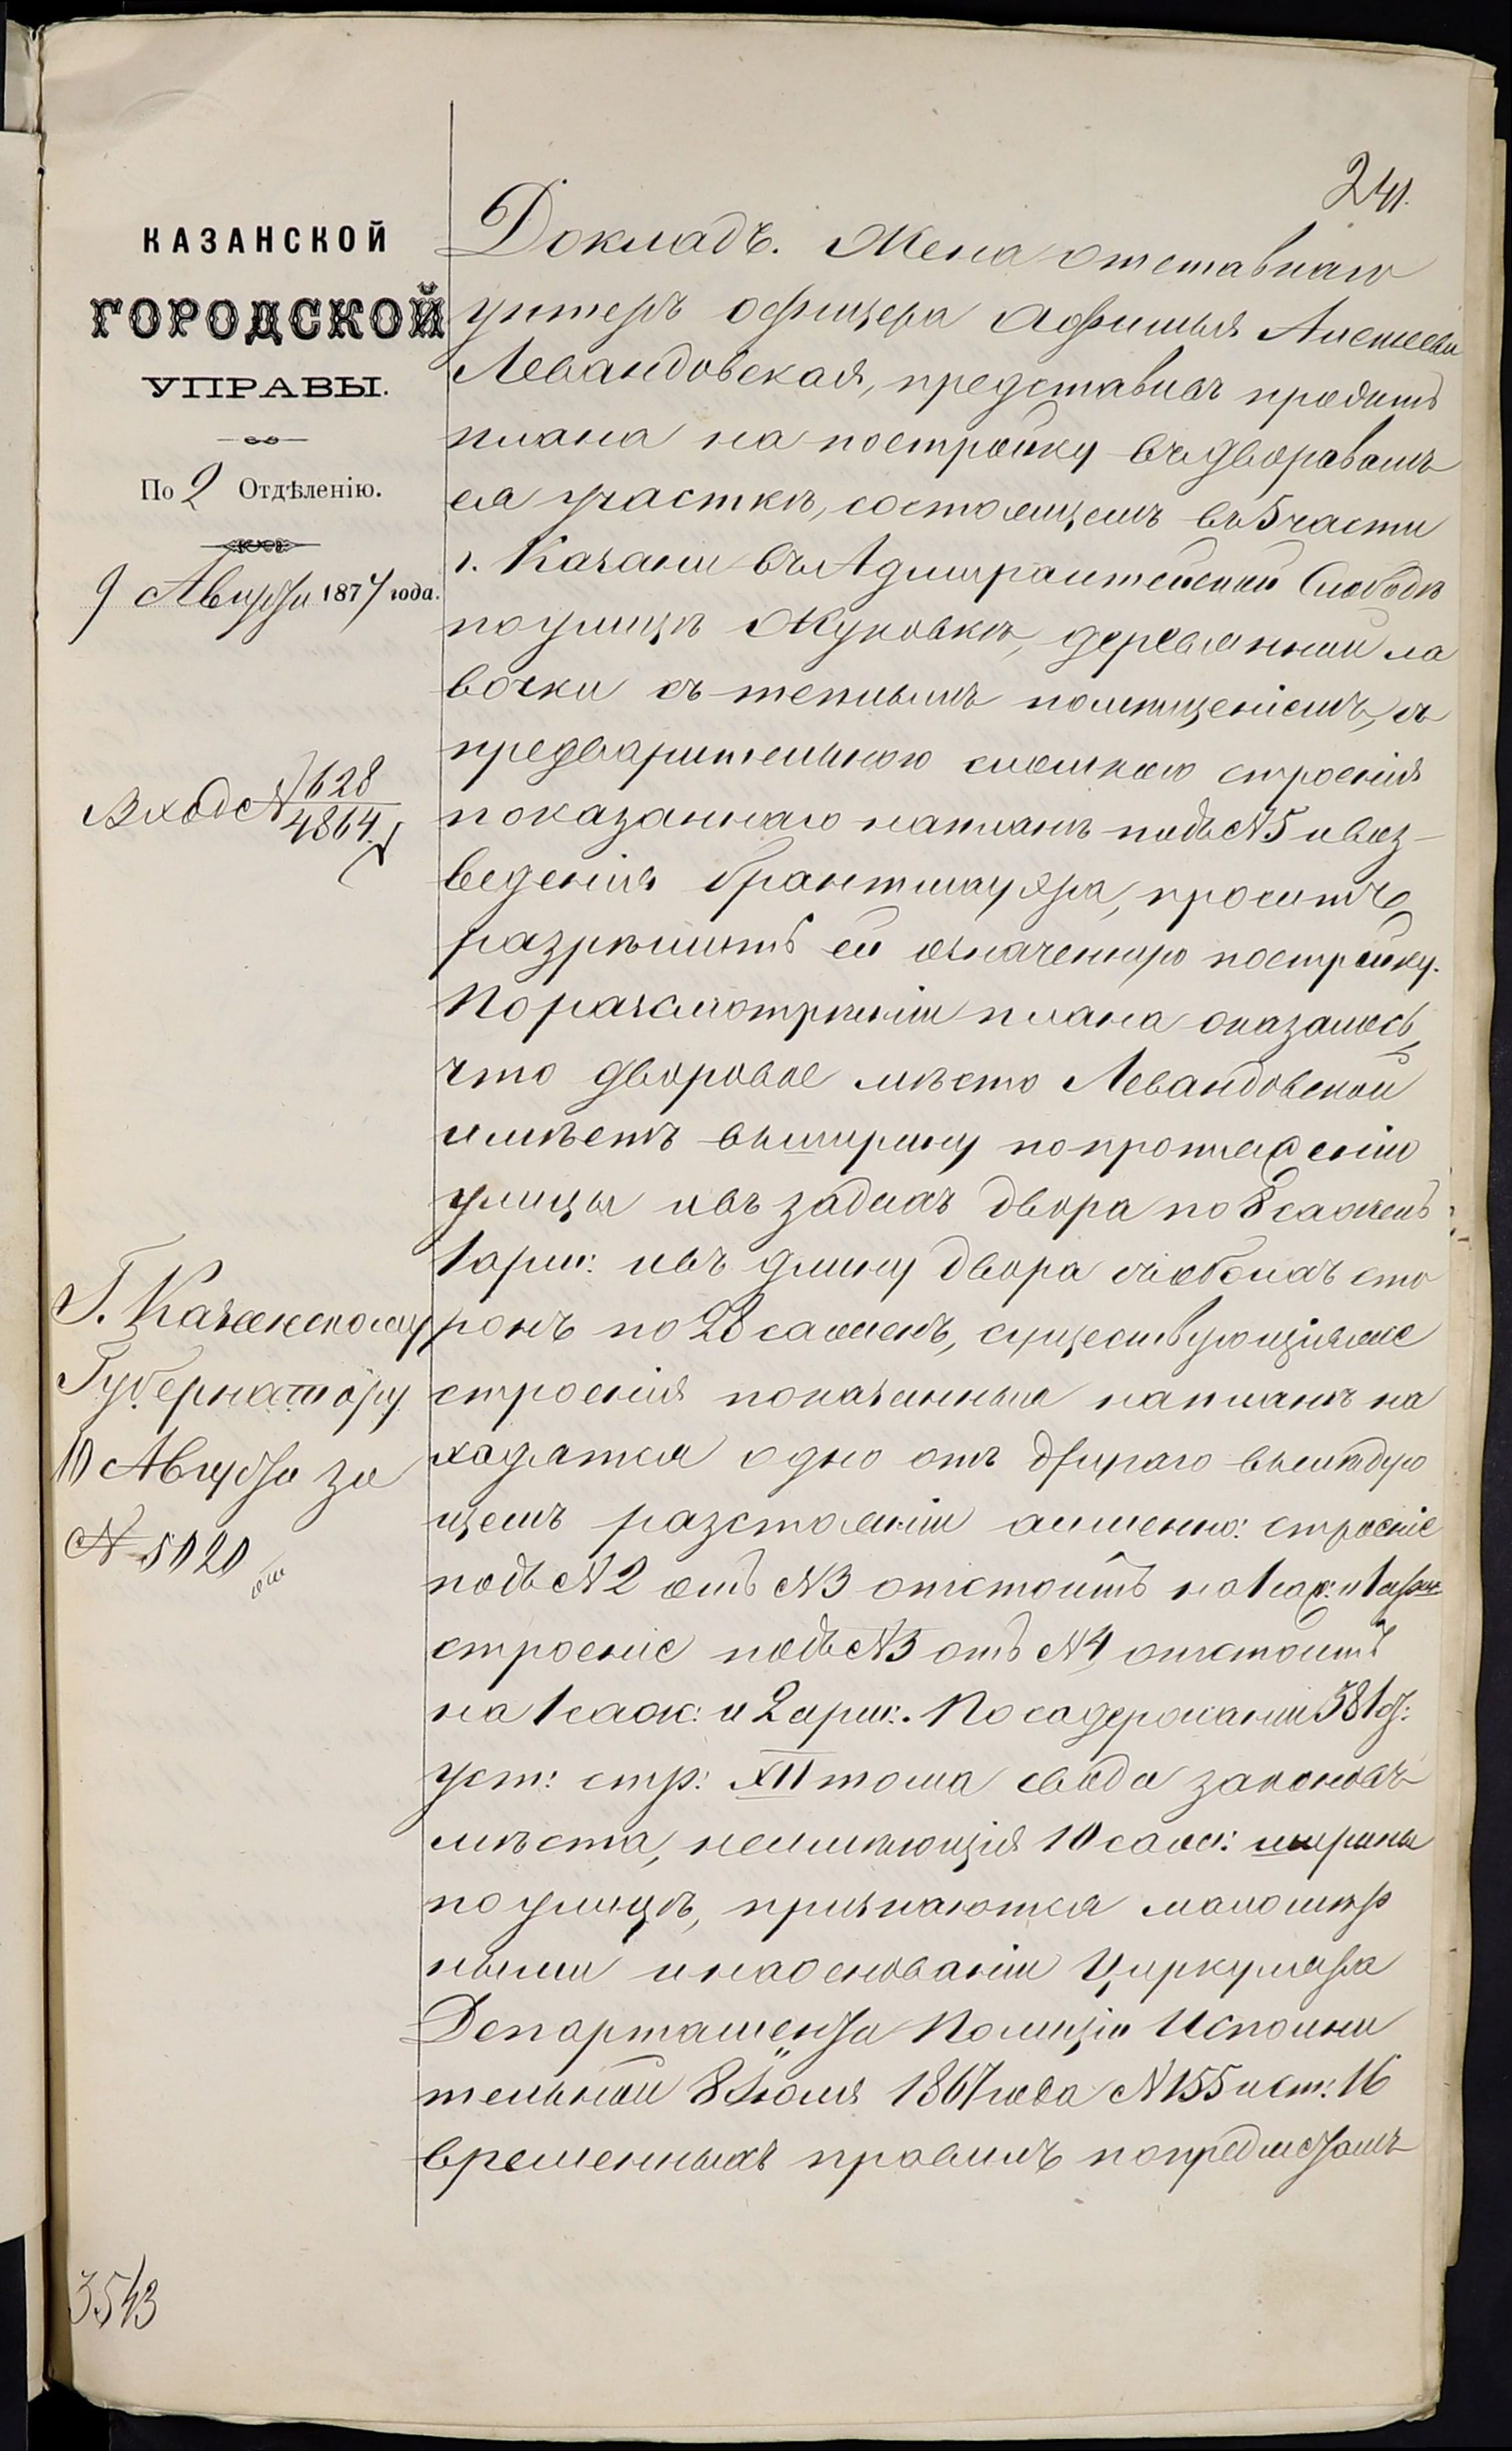 241.
КАЗАНСКОЙ
ГОРОДСКОЙ
УПРАВЫ.
По 2 Отдѣленію.
9 Августа 1877 года.
Вход № 1628
4864
Г. Казанскому
Губернатору
10 Августа за
№ 5020
3543
Докладъ. Жена отставнаго
унтеръ офицера Афимья Алексеева
Левандовская, представивъ проэктъ
плана на постройку въ дворовомъ
ея участкѣ, состоящемъ въ 5 части
г. Казани въ Адмиралтейской Слободѣ
по улицѣ Жуковкѣ, деревянной ла
вочки съ теплымъ помѣщеніемъ, съ
предварительною сломкою строенія
показаннаго на планѣ подъ № 5 и воз-
веденія брантмауэра, проситъ
разрѣшить ей означенную постройку.
По разсмотрѣніи плана оказалось,
что дворовое мѣсто Левандовской
имѣетъ въ ширину по протяженію
улицы и въ задахъ двора по 8 сажень
1 арш: и въ длину двора съ обоихъ сто
ронъ по 28 сажень, существующія же
строенія показанныя на планѣ на
ходятся одно отъ другаго въ слѣдую
щемъ разстояніи а именно: строеніе
подъ № 2 отъ № 3 отстоитъ на 1 саж: и 1 арш
строеніе подъ № 3 отъ № 4 отстоитъ
на 1 саж: и 2 арш:. По содержанію 381 ст:
уст: стр: XII тома свода законовъ
мѣста, неимѣющія 10 саж: ширины
по улицѣ, признаются маломѣр
ными и на основаніи Циркуляра
Департамента Полиціи Исполни
тельной 8 Іюля 1867 года № 155 и ст: 16
временныхъ правилъ по предметамъ